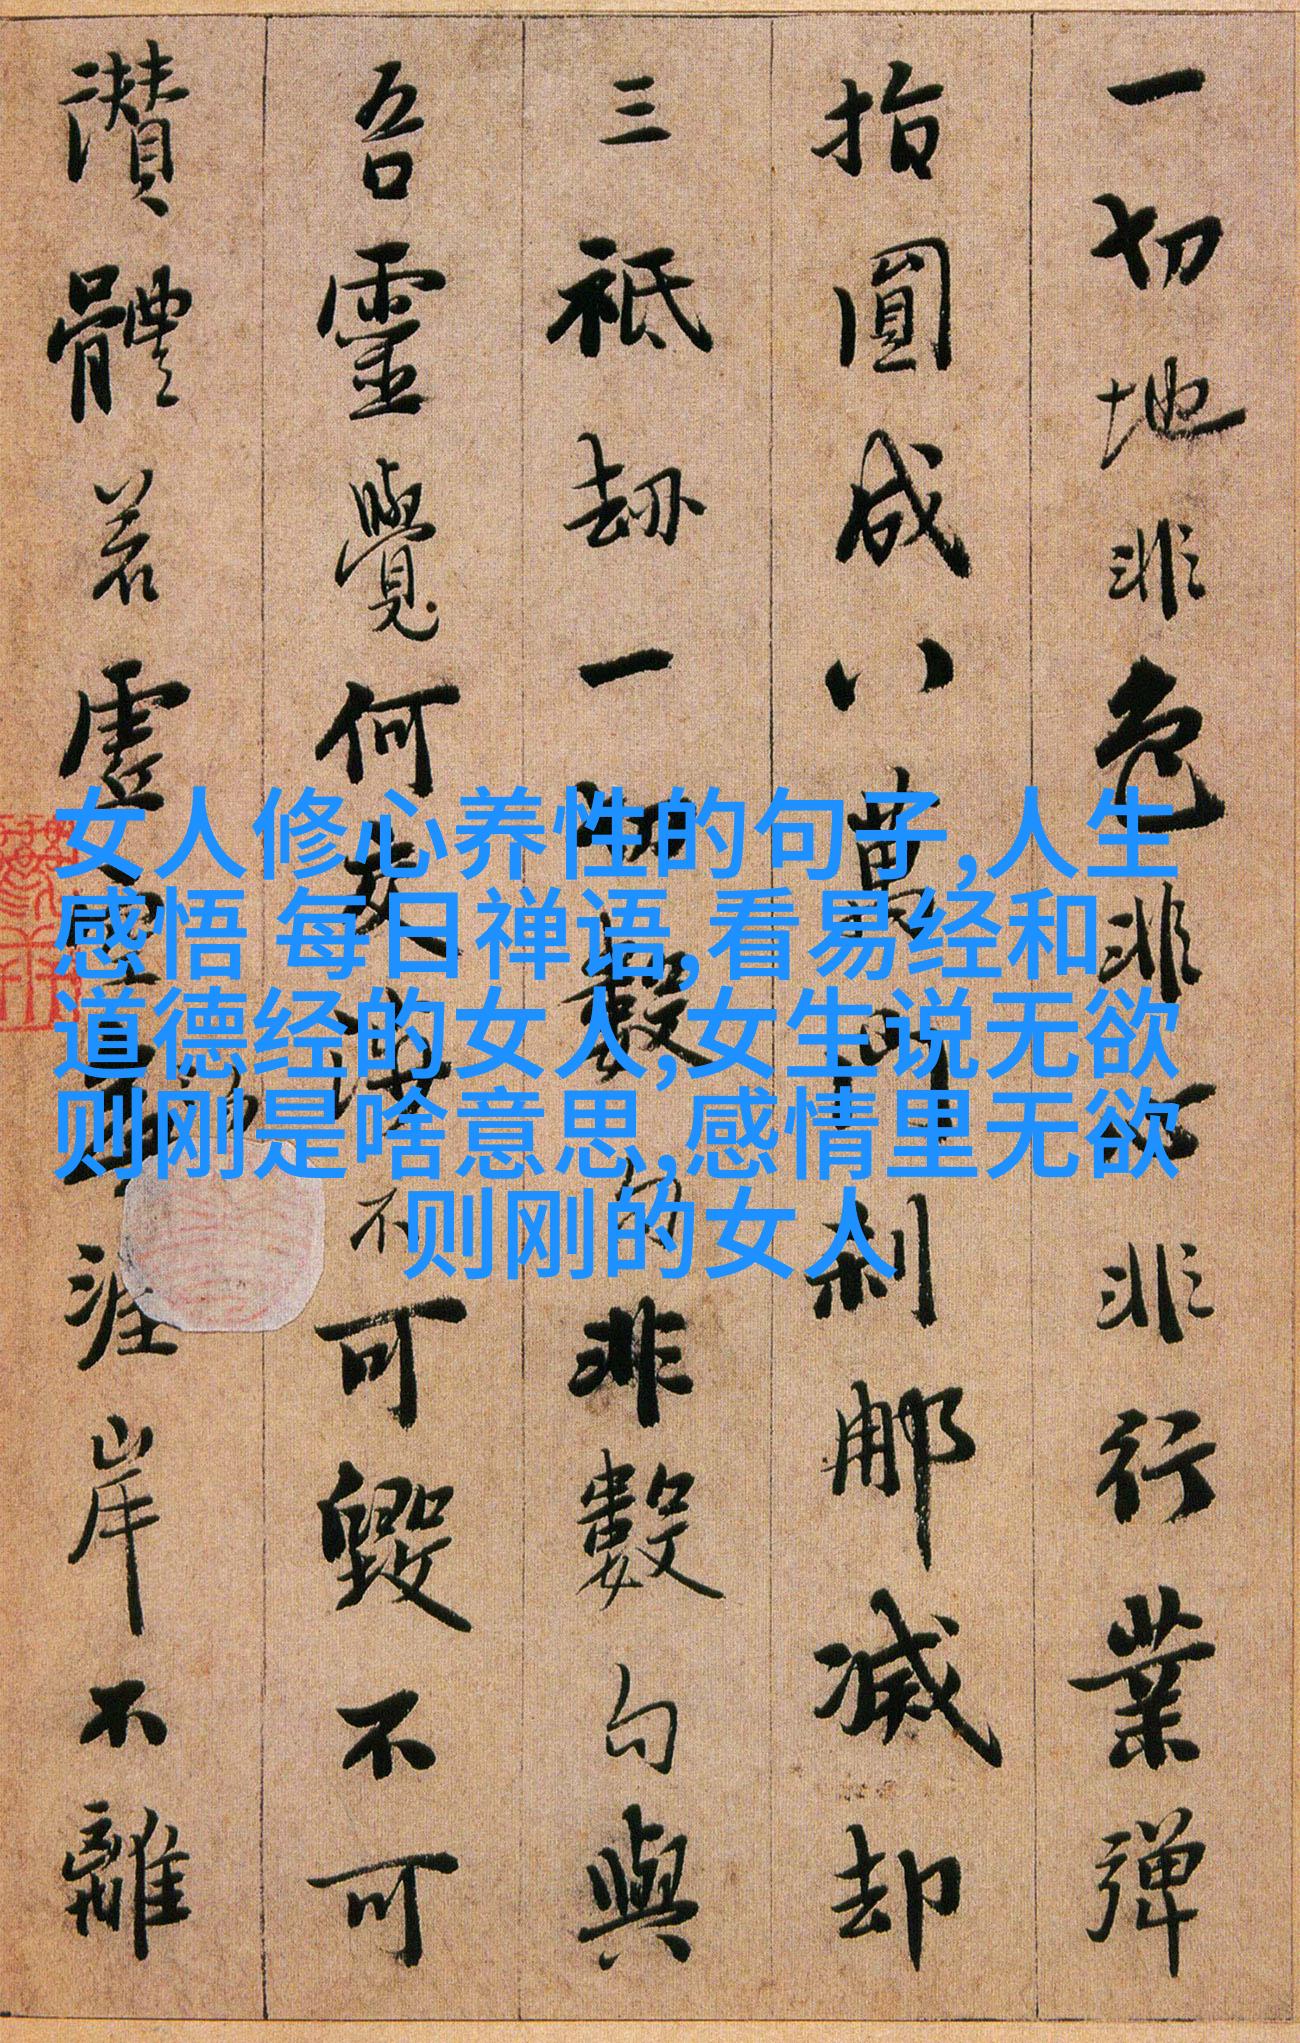 一切地非色非心非行業彈
指圓成八萬門刹那減却
三祇劫一切數句非數句與
吾靈覺何交涉不可毀不可
讚體若虛空勿涯岸不離
女人修心养性的句子,人生
感悟 每日禅语,看易经和
道德经的女人,女生说无欲
则刚是啥意思,感情里无欲
则刚的女人